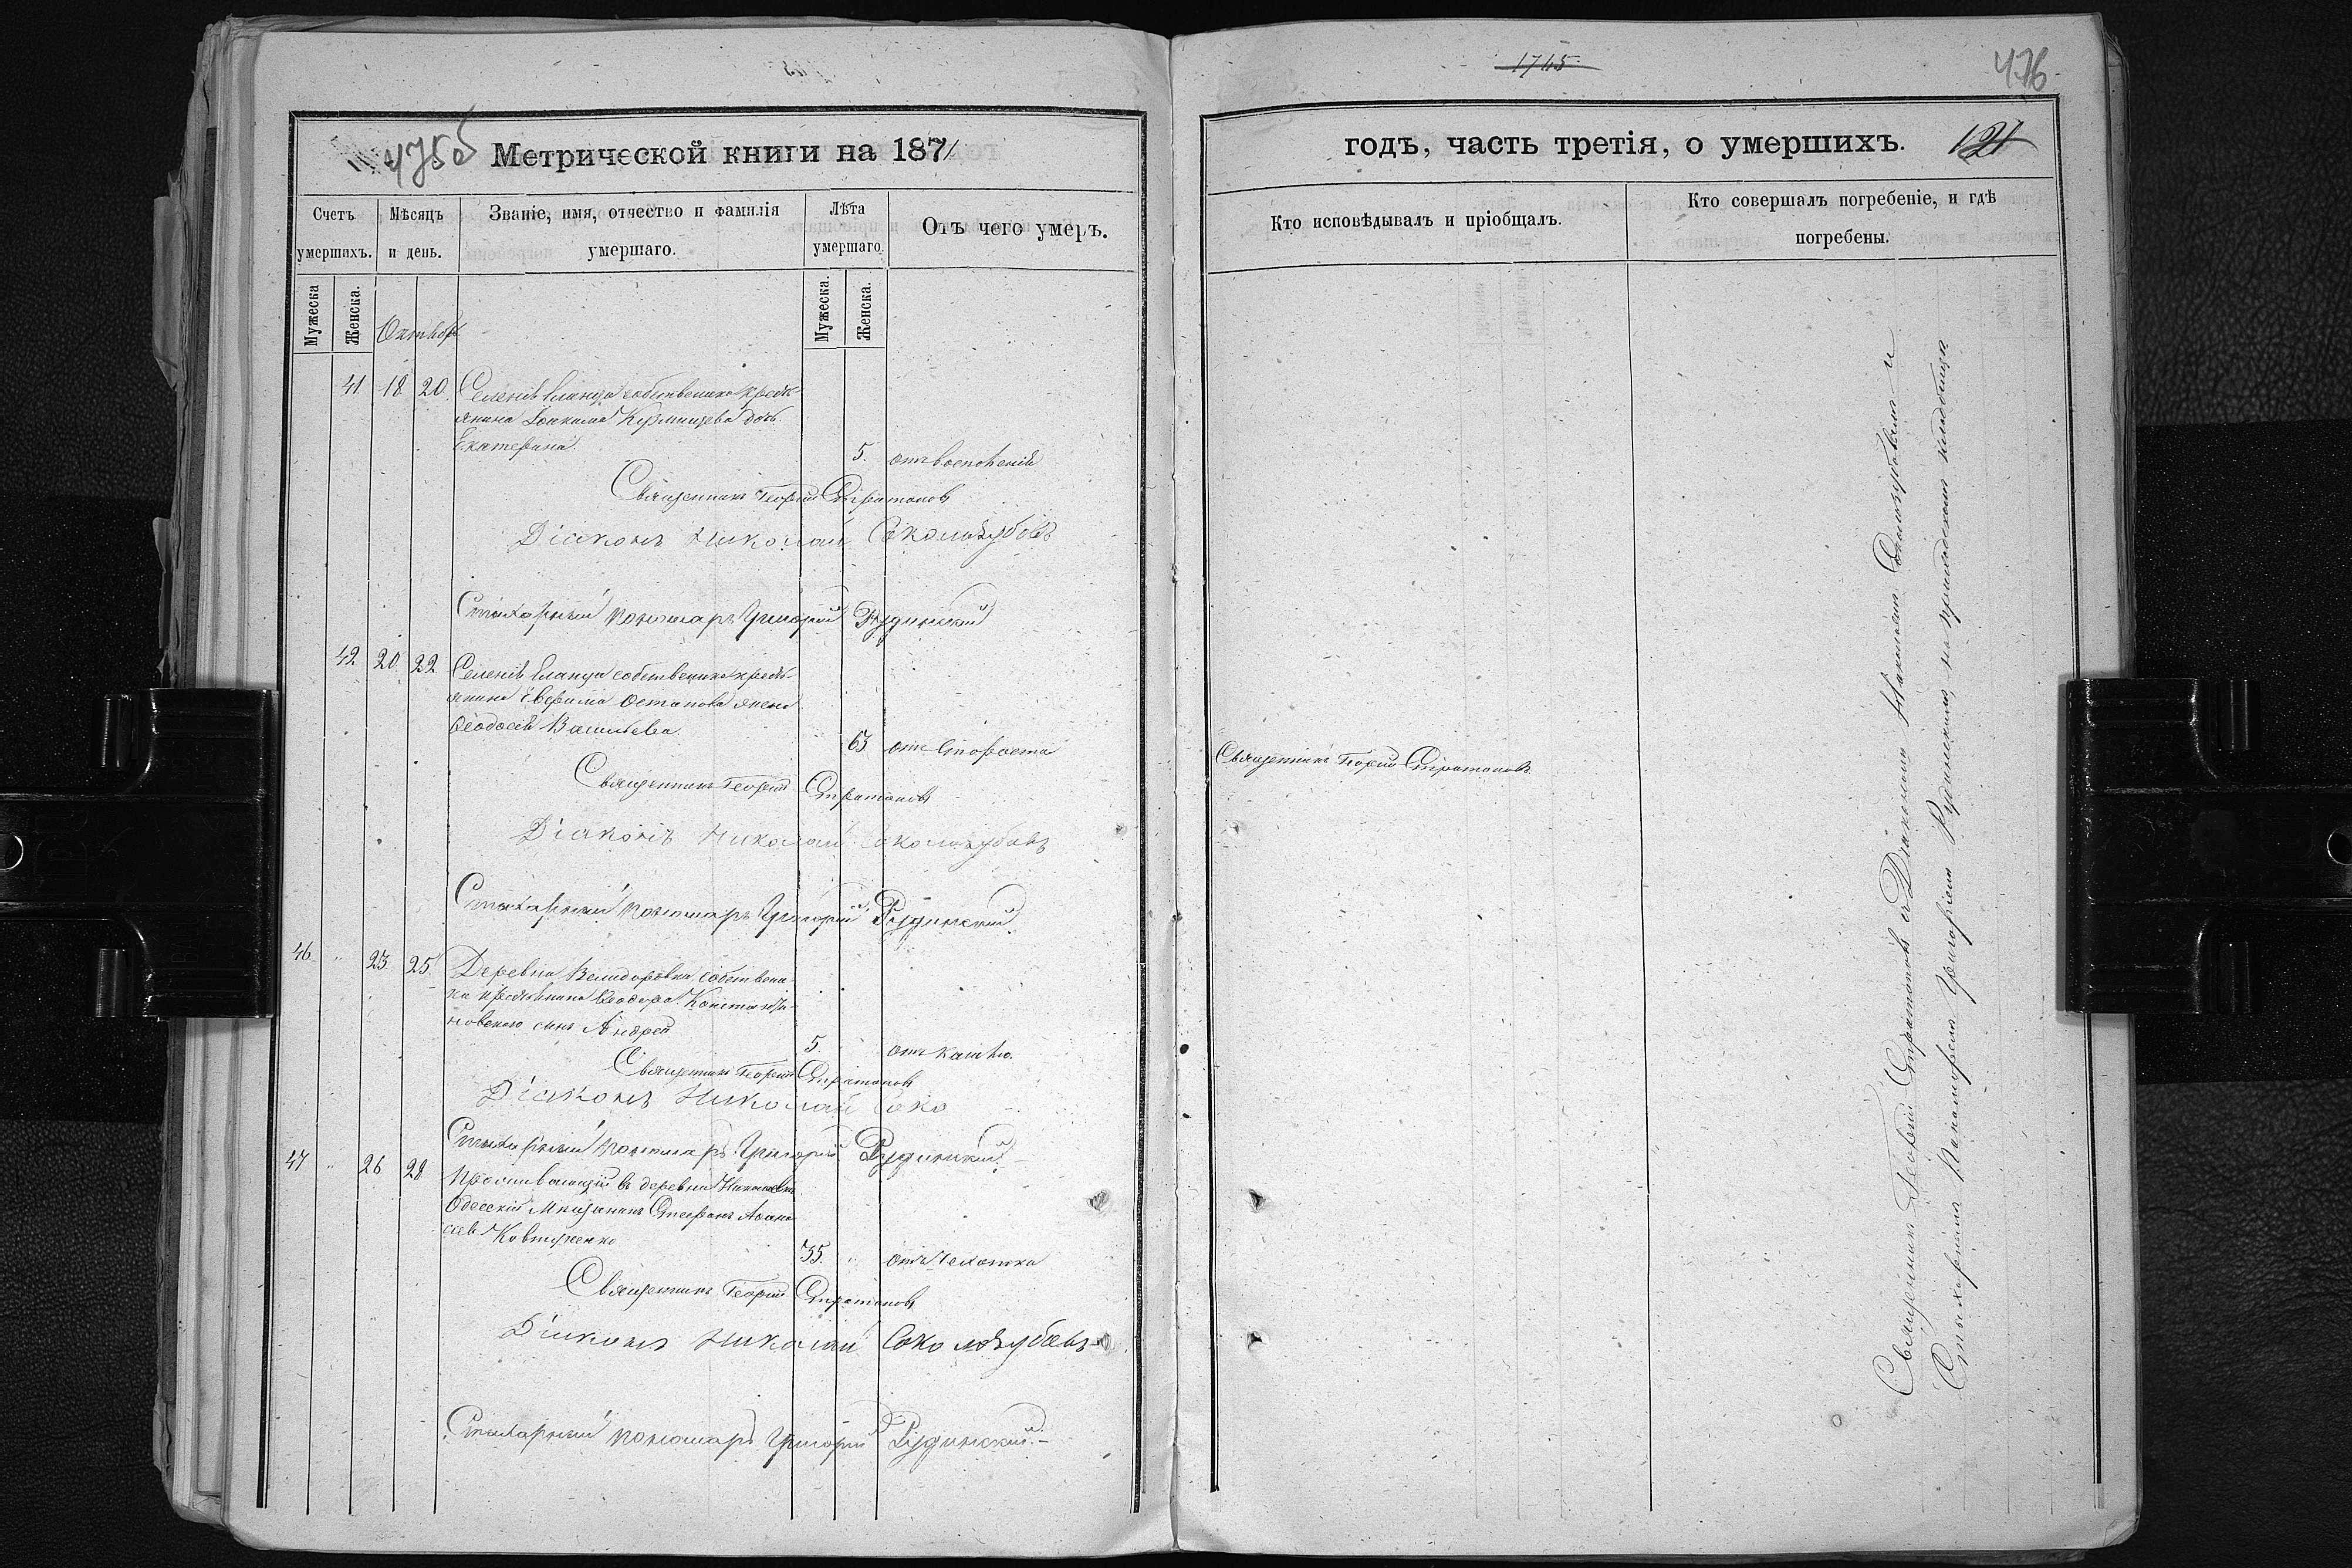 475об
Метрической книги на 1871
Счетъ умершихъ.
Мѣсяцъ и день.
Званіе, имя, отчество и фамилія умершаго.
Лѣта умершаго.
Отъ чего умеръ.
Мужеска
Женска.
Октябрь
Мужеска.
Женска.
41 18 20 Селенія Еланца собственика крестъ-
янина Іоакима Кузминцева дочь
Екатерина.
5. отъ воспы
Священникъ Георгій Стратоновъ
Діаконъ Николай Соколозубовъ
Стихарный пономарь Григорій Рудинскій
42 20 22 Селенія Еланца собственика крестъ-
янина Евфима Остапова жена
Ѳеодосія Васильева.
63 отъ старости
Священникъ Георгій Стратоновъ
Діаконъ Николай Соколозубовъ
Стихарный пономарь Григорій Рудинскій
46 " 23 25 Деревни собствени-
ка крестьянина Ѳеодора Константи-
новскаго сынъ Андрей
5. отъ кашлю.
Священникъ Георгій Стратоновъ
Діаконъ Николай Соко
Стихарный пономарь Григорій Рудинскій
47 " 26 28 Проживающій въ деревни Николаевки
Одесскій Мещанинъ Стефанъ Аѳана-
сіевъ
35. " отъ чехотки
Священникъ Георгій Стратоновъ
Діаконъ Николай Соколозубовъ
Стихарный пономарь Григорій Рудинскій
1745
476
годъ, часть третія, о умершихъ.
121
Кто исповѣдывалъ и пріобщалъ.
Кто совершалъ погребеніе, и гдѣ погребены.
Священникъ Георгій Стратоновъ
Священникъ Георгій Стратоновъ съ Діакономъ Николаемъ Соколозубовымъ и
Стихарнымъ Пономаремъ Григоріемъ Рудинскимъ, на приходскомъ кладбищѣ